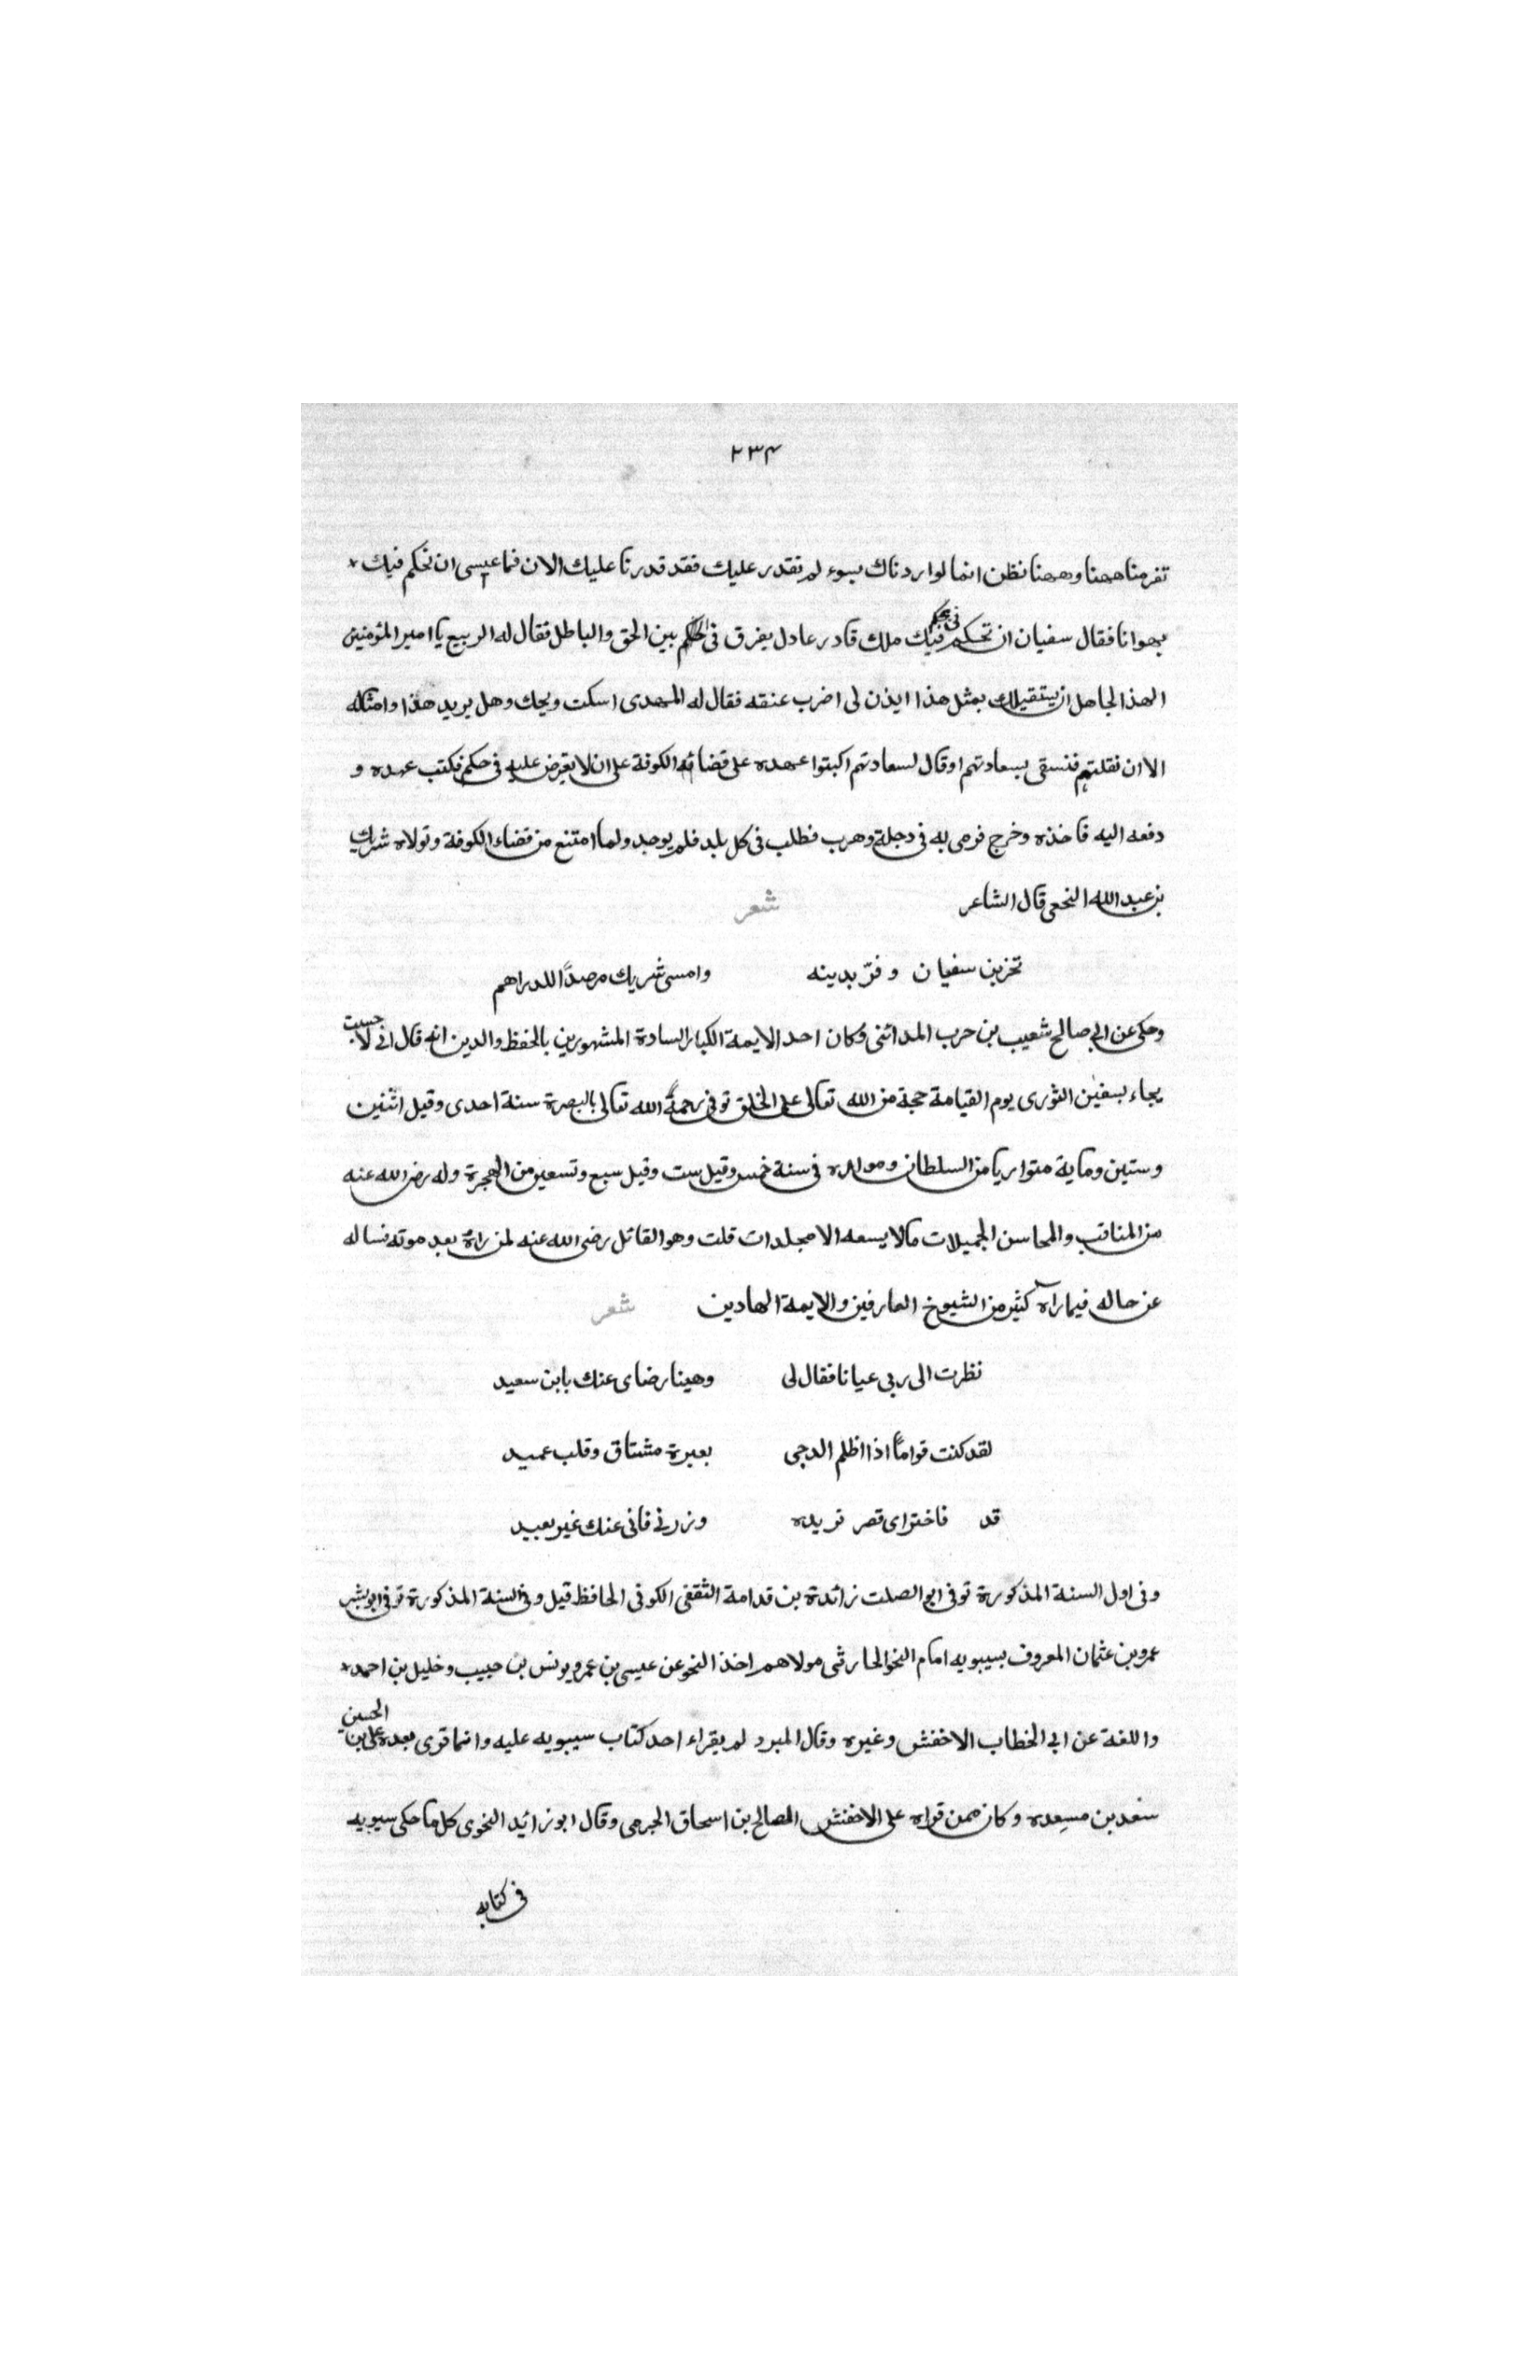 ٢٣٤
تفر منا ههنا وههنا نظن انما لو اردناك بسوء لم نقدر عليك فقد قدرنا عليك الان فما عيسى ان نحكم فيك
بهوانا فقال سفيان ان تحكم في يحكم فيك ملك قادر عادل يفرق في الحكم بين الحق والباطل فقال له الربيع يا امير المؤمنين
الهذا الجاهل ان يستقبلك بمثل هذا ايذن لى اضرب عنقه فقال له المهدى اسكت ويحك وهل يريد هذا وامثاله
الا ان نقتلهم فنشقى بسعادتهم او قال لسعادتهم اكبتوا عهده على قضائه الكوفة على ان لا يعرض عليه فى حكم فكتب عهده و
دفعه اليه فاخذه وخرج فرمى به فى دجلة وهرب فطلب فى كل بلد فلم يوجد ولما امتنع من قضاء الكوفة وتولاه شريك
بن عبد الله النخعى قال الشاعر شعر
تخزين سفيان وفرّ بدينه وامسى شريك مرصدًا للدراهم
وحكى عن ابى صالح شعيب بن حرب المدائنى وكان احد الايمة الكبار السادة المشهورين بالحفظ والدين انه قال انى لا حسبت
يجاء بسفين الثورى يوم القيامة حجة من الله تعالى على الخلق توفى رحمة الله تعالى بالبصرة سنة احدى وقيل اثنين
وستين وماية متواريا من السلطان ومولده فى سنة خمس وقيل ست وقيل سبع وتسعين من الهجرة وله رضى الله عنه
من المناقب والمحاسن الجميلات مالا يسعه الا مجلدات قلت وهو القائل رضى الله عنه لمن راه بعد موته فساله
عن حاله فيما راه كثير من الشيوخ العارفين والايمة الهادين شعر
نظرت الى ربى عيانا فقال لى وهينا رضاى عنك يابن سعيد
لقد كنت قوامًا اذا اظلم الدجى بعبرة مشتاق وقلب عميد
قد فاختر اى قصر تريده وزرنى فانى عنك غير بعيد
وفى اول السنة المذكورة توفى ابو الصلت زائدة بن قدامة الثقفى الكوفى الحافظ قيل وفى السنة المذكورة توفى ابو بشر
عمرو بن عثمان المعروف بسيبويه امام النحو الحارثى مولاهم اخذ النحو عن عيسى بن عمرو يونس بن حبيب وخليل بن احمد
واللغة عن ابى الخطاب الاخفش وغيره وقال المبرد لم يقراء احد كتاب سيبويه عليه وانما قرى بعده على بن الحسين
سعد بن مسعده وكان ممن قراه على الاخفش الصالح بن اسحاق الجرمى وقال ابو زائيد النحوى كل ما حكى سيبويه
فى كتابه